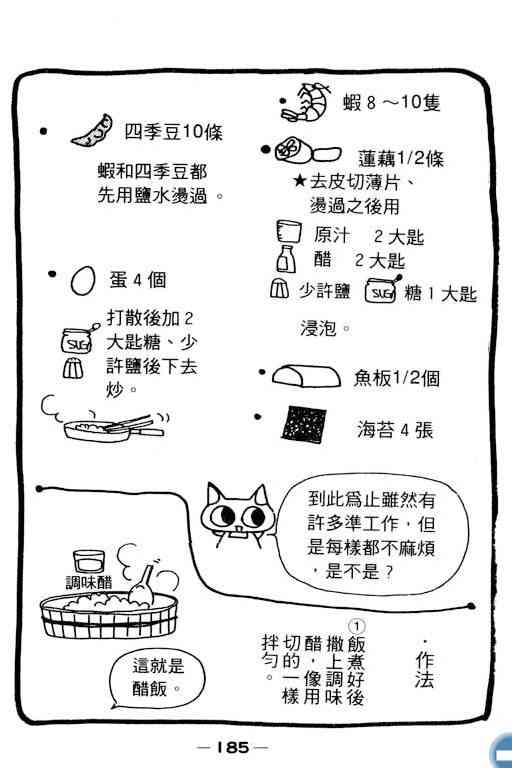 四季豆10條
蝦和四季豆都
先用鹽水燙過。
蛋4個
打散後加2
大匙糖、少
許鹽後下去
炒。
SUGA
蝦8～10隻
蓮藕1/2條
★去皮切薄片、
燙過之後用
原汁 2大匙
醋 2大匙
少許鹽 SUG 糖1大匙
浸泡。
魚板1/2個
海苔4張
到此為止雖然有
許多準工作，但
是每樣都不麻煩
，是不是？
調味醋
這就是
醋飯。
・作法
①飯煮好後
撒上調味
醋，像用
切的一樣
拌勻。
— 185 —